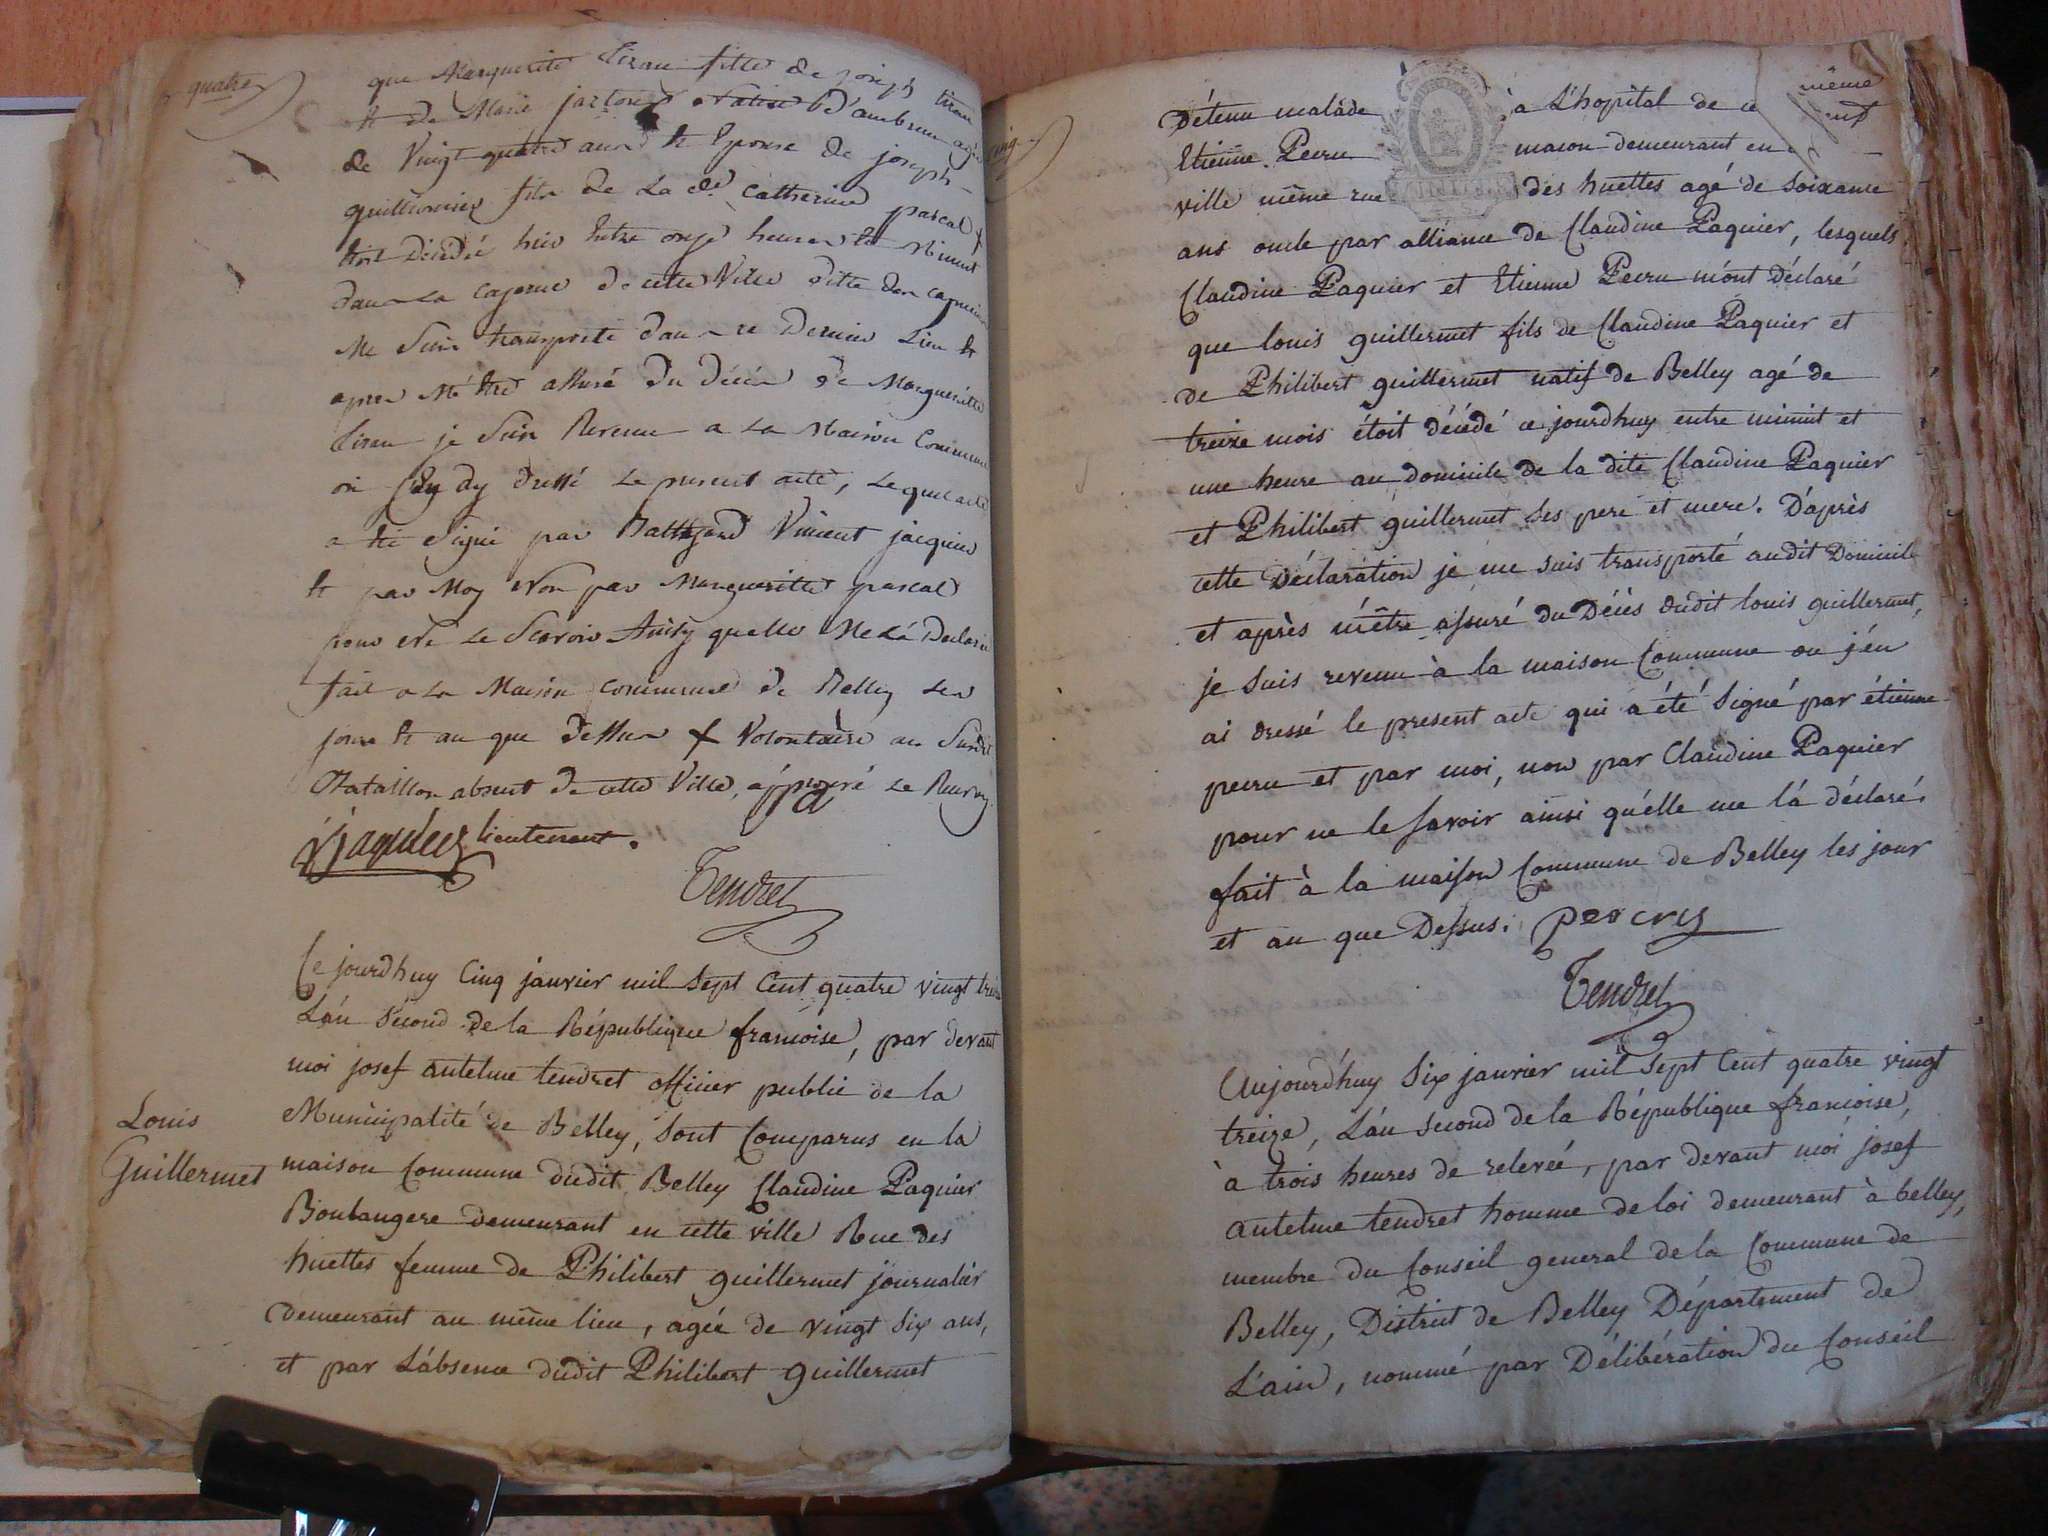 quatre
que Marguerite Tiran fille de joseph tiran
et de Marie jarton Native d'ambrun agée
de Vingt quatre ans et Epouse de joseph
guillionnier fils de La de Catherine pascal
étoit décédée hier Entre onze heures et Minuit
dans La Caserne de cette Ville ditte des capucins
Me Suis transporté dans ce Dernier Lieu et
apres M'être assuré Du décés de Margueritte
Tiran je Suis Revenu a La Maison Commune
ou j'en ay dressé Le present acte, Lequel acte
a été Signé par Vincent jacquier
et par Moy Non par Marguerittes pascal
pour Ne Le Scavoir Ainsy quelle Me L'a Declaré
fait a La Maison commune de Belley Les
jour et an que dessus + Volontaire au Susdit
Bataillon absent de cette Ville, approuvé Le Renvoy.
lieutenant.
Tendret
Ce jourdhuy Cinq janvier mil Sept Cent quatre vingt treize
L'an Second de la République françoise, par devant
moi josef antelme tendret officier public de la
Municipalité de Belley, Sont Comparus en la
maison Commune dudit Belley Claudine Paquier
Boulangere demeurant en cette ville Rue des
huettes femme de Philibert guillermet journalier
demeurant au même lieu, agée de vingt Six ans,
et par L'absence dudit Philibert guillermet
Louis
Guillermet
cinq
Détenu malade à L'hopital de ce même
Etienne Peeru macon demeurant en
ville même rue des huettes agé de Soixante
ans oncle par alliance de Claudine Paquier, lesquels
Claudine Paquier et Etienne Peeru m'ont Déclaré
que louis guillermet fils de Claudine Paquier et
de Philibert guillermet natif de Belley agé de
treize mois étoit décédé ce jourdhuy entre minuit et
une heure au domicile de la dite Claudine Paquier
et Philibert guillermet Ses pere et mere. D'après
cette Déclaration je me suis transporté audit Domicile
et après m'être assuré du Décès dudit louis guillermet,
je suis revenu à la maison Commune ou j'en
ai dressé le present acte qui a été Signé par étienne
peeru et par moi, non par Claudine Paquier
pour ne le savoir ainsi qu'elle me l'a déclaré.
fait à la maison Commune de Belley les jour
et an que Dessus.
Tendret
Aujourd'huy Six janvier mil Sept Cent quatre vingt
treize, L'an Second de la République francoise,
à trois heures de relevée, par devant moi josef
antelme tendret homme de loi demeurant à belley,
membre du Conseil general de la Commune de
Belley, District de Belley Département de
L'ain, nommé par Délibération du Conseil